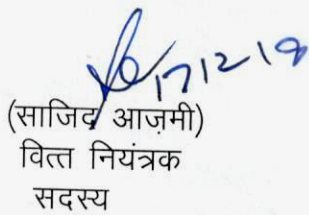 17/12/19
(साजिद आज़मी)
वित्त नियंत्रक
सदस्य